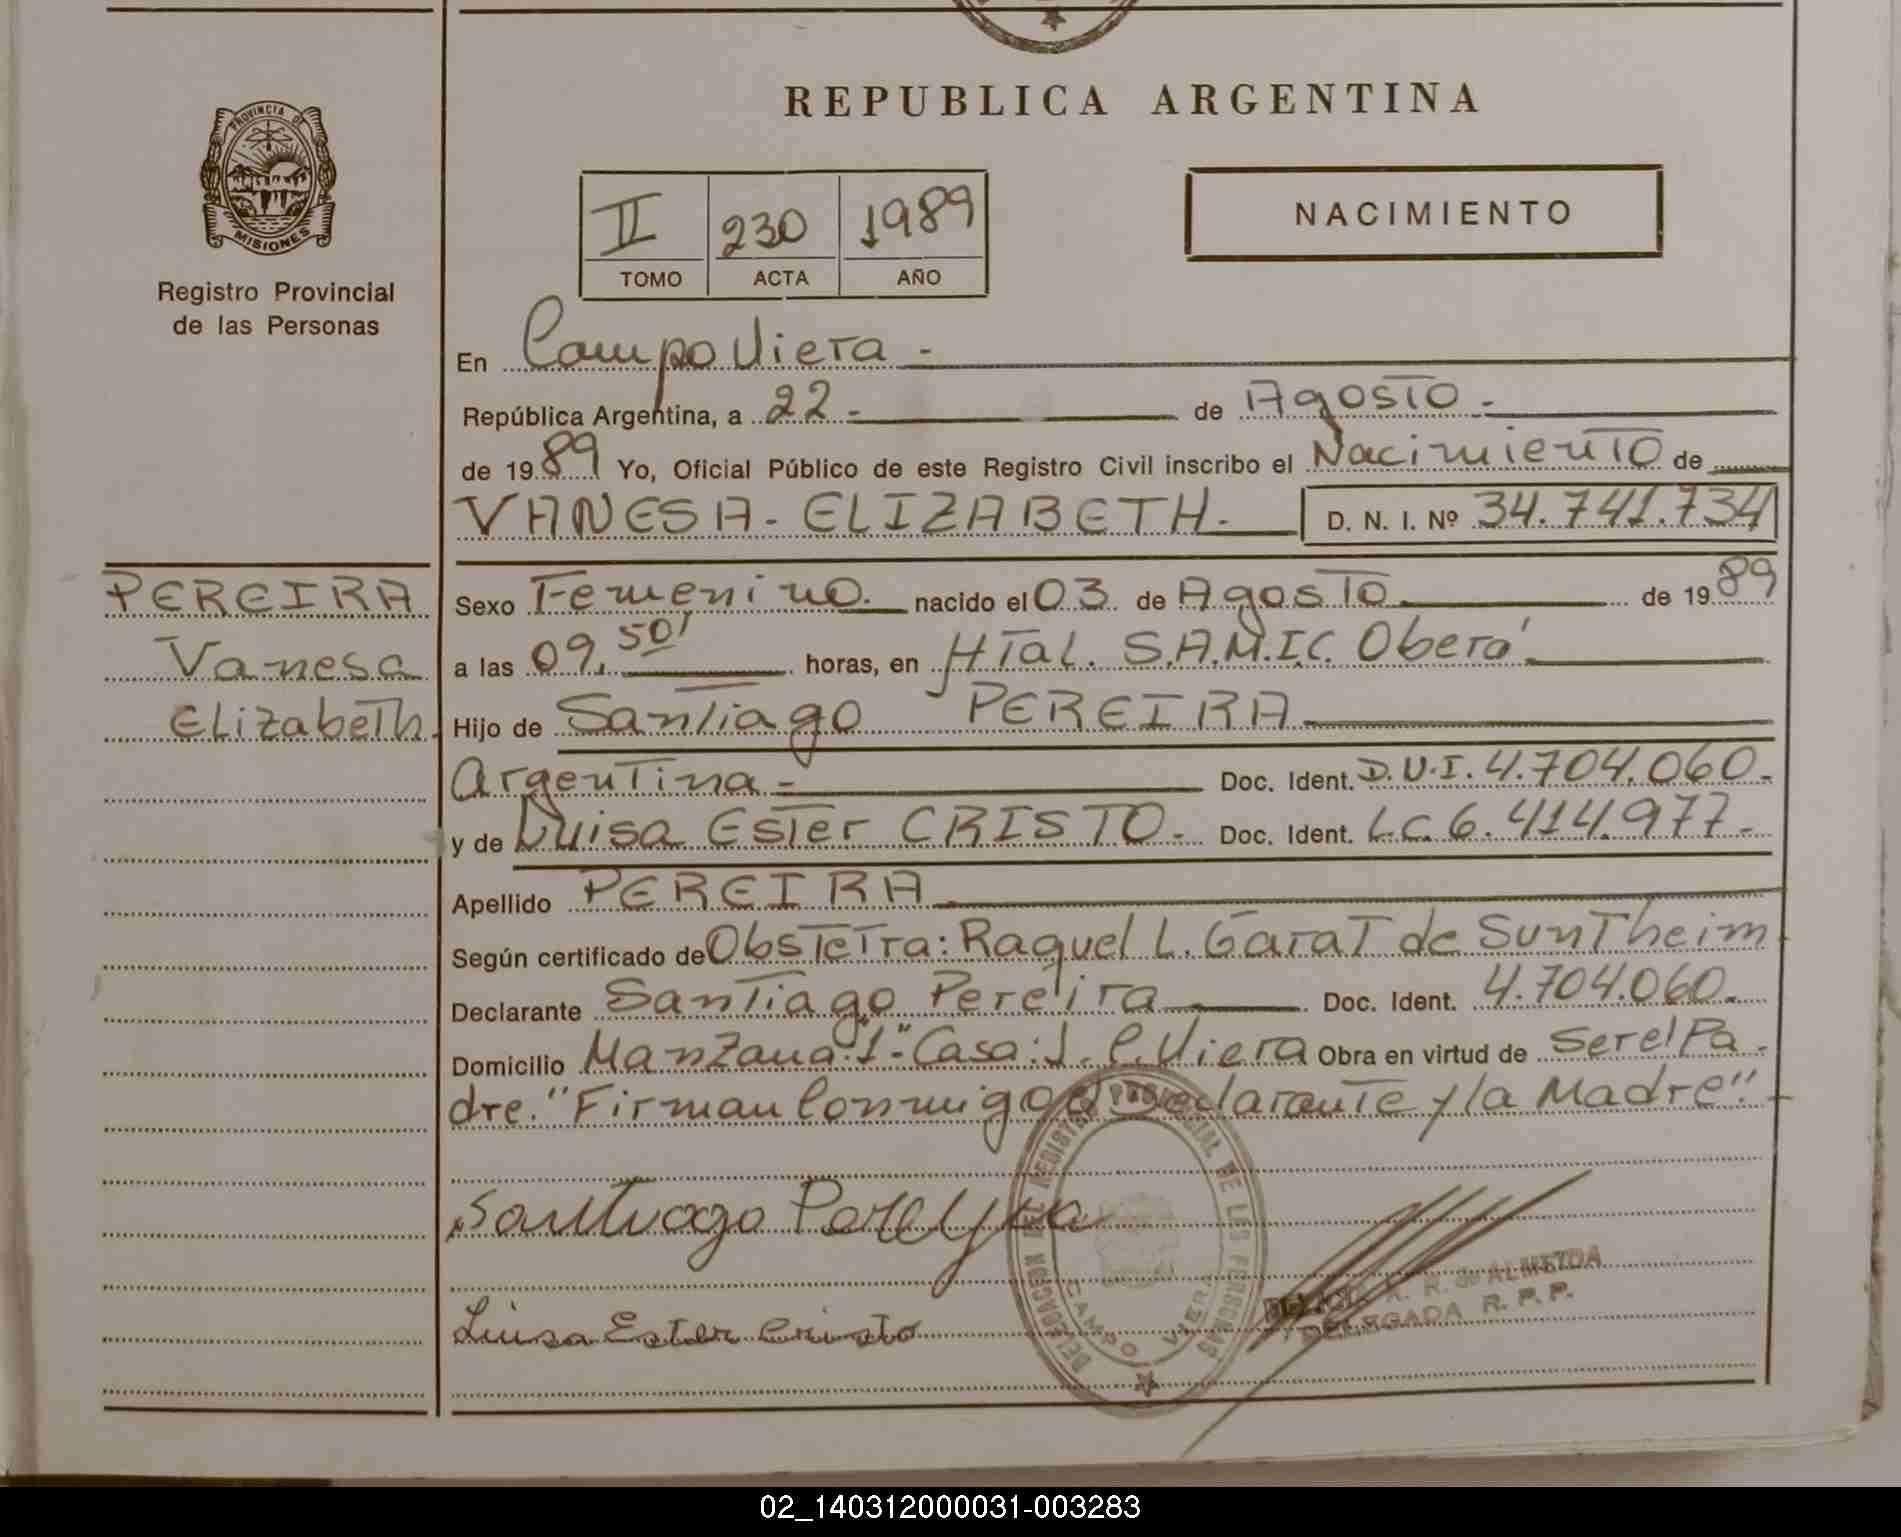 REPUBLICA ARGENTINA
PROVINCIA DE
MISIONES
Registro Provincial
de las Personas
II 230 1989
TOMO ACTA AÑO
NACIMIENTO
En Campo Viera -
República Argentina, a 22 - de Agosto -
de 1989 Yo, Oficial Público de este Registro Civil inscribo el Nacimiento de
VANESA - ELIZABETH - D. N. I. Nº 34.741.734
PEREIRA
Vanesa
Elizabeth.
Sexo Femenino. nacido el 03 de Agosto de 1989
a las 09,50' horas, en HTal. S.A.M.I.C. Oberá
Hijo de Santiago PEREIRA
Argentina - Doc. Ident. D.U.I. 4.704.060-
y de Luisa Ester CRISTO - Doc. Ident. L.C. 6.414.977-
Apellido PEREIRA
Según certificado de Obstetra: Raquel L. Garat de Suntheim
Declarante Santiago Pereira Doc. Ident. 4.704.060.
Domicilio Manzana:"1" Casa: 1. C. Viera Obra en virtud de ser el Pa-
dre. "Firman Conmigo el Declarante y la Madre". -
Santiago Pereyra
Luisa Ester Cristo
DELEGACION DEL REGISTRO PROVINCIAL DE LAS PERSONAS
CAMPO VIERA
R. R. de ALMEIDA
DELEGADA R. P. P.
02_140312000031-003283